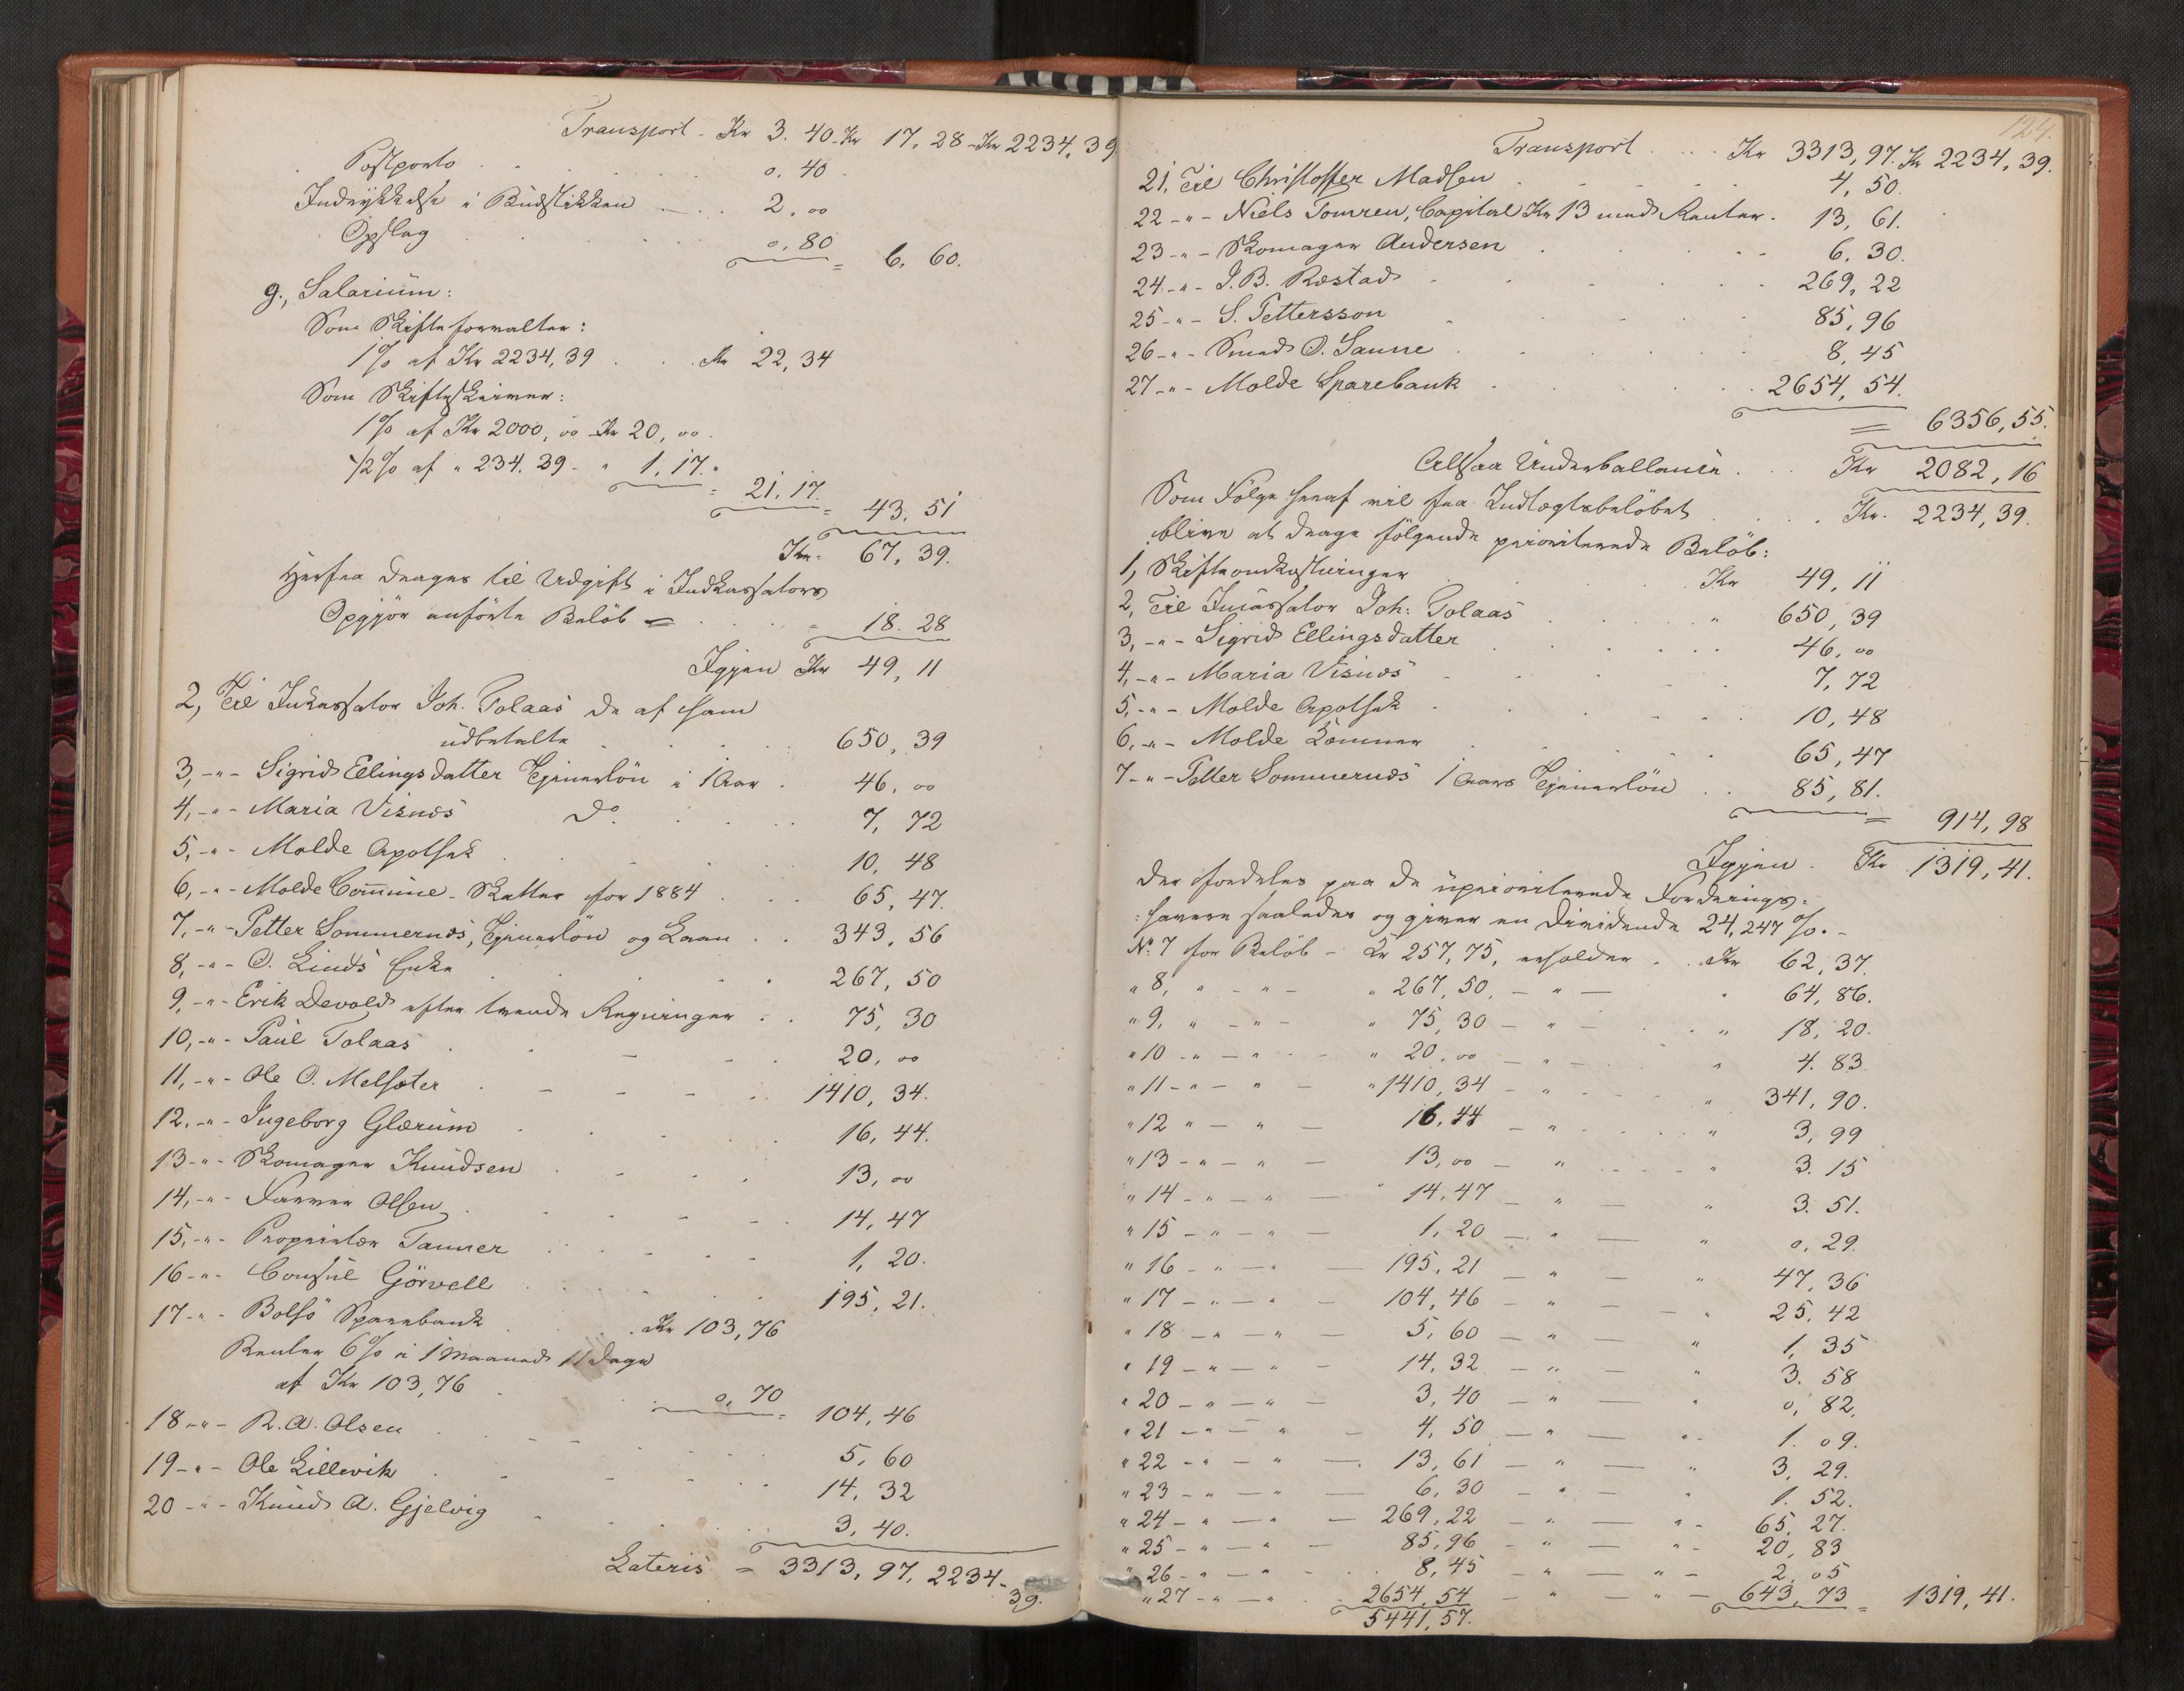 Transport - Kr 3.40. Kr 17,28 - Kr 2234,39
Postporto . . . 0,40
Indrykkelse i Budstikken . . 2,00
Opslag . . . 0,80 = 6,60.
g., Salarium:
Som Skifteforvalter:
1% af Kr 2234,39 . . Kr 22,34
Som Skifteskriver:
1% af Kr 2000,00 Kr 20,00.
1/2% af " 234.39 - " 1,17. = 21,17. = 43,51
Kr. 67,39.
Herfra drages til Udgift i Indkassators
Opgjör anförte Belöb = . . . 18.28
Igjen Kr 49,11
2, Til Inkassator Joh. Tolaas de af ham
udbetalte . . . 650,39
3, -"- Sigrid Ellingsdatter Tjenerlön i 1 Aar . 46,00
4, -"- Maria Visnes Do . . . 7,72
5, -"- Molde Apothek . . . 10,48
6, -"- Molde Commune - Skatter for 1884 . . 65,47.
7, -"- Petter Sommernes, Tjenerlön og Laan . . 343,56
8, -"- O. Linds Enke . . . 267,50
9, -"- Erik Devold efter tvende Regninger . . 75,30
10, -"- Paul Tolaas . . . 20,00
11, -"- Ole O. Melsæter . . . 1410,34.
12, -"- Ingeborg Glærum . . . 16,44.
13 -"- Skomager Knudsen . . . 13,00
14, -"- Farver Olsen . . . 14,47
15, -"- Proprietær Tanner . . . 1,20.
16 -"- Consul Görvell . . . 195,21.
17 -"- Bolsö Sparebank . . . Kr 103,76
Renter 6% i 1 Maaned 11 Dage
af Kr 103,76 . . . 0,70 = 104,46
18 -"- R. A. Olsen . . . 5,60
19 -"- Ole Lillevik . . . 14,32
20 -"- Knud A. Gjelvig . . . 3,40.
Lateris = 3313,97, 2234-
39.
124.
Transport . . . Kr 3313,97. Kr 2234,39.
21, Til Christoffer Madsen . . . 4,50.
22 -"- Niels Tomren, Capital Kr 13 med Renter . 13,61.
23 -"- Skomager Andersen . . . 6,30.
24 -"- J. B. Rostad . . . 269,22
25 -"- S. Pettersson . . . 85,96
26 -"- Smed O. Sanne . . . 8,45
27 -"- Molde Sparebank . . . 2654,54.
= 6356,55.
Altsaa Underballance . . Kr 2082,16
Som Fölge heraf vil fra Indtægtsbelöbet . . . Kr. 2234,39.
blive at drage fölgende prioriterede Belöb:
1, Skifteomkostninger . . . Kr 49,11
2, Til Incassator Joh: Tolaas . . " 650,39
3, -"- Sigrid Ellingsdatter . . . 46,00
4, -"- Maria Visnes . . . 7,72
5, -"- Molde Apothek . . . 10,48
6, -"- Molde Kæmner . . . 65,47
7 -"- Petter Sommernes 1 Aars Tjenerlön . . 85,81.
= 914,98
Igjen . Kr 1319,41.
der fordeles paa de uprioriterede Fordrings-
:havere saaledes og giver en Dividende 24,247%. -
No 7 for Belöb - Kr 257,75, erholder . . Kr 62,37.
" 8, " - " - " 267,50, - " - " 64,86.
" 9, " - " - " 75,30 - " - " 18,20.
" 10 - " - " - " 20,00 - " - " 4.83.
" 11 - " - " - " 1410,34 - " - " 341,90.
" 12 " - " - 16,44 - " - " 3,99
" 13 - " - " - 13,00 - " - " 3.15
" 14 - " - " - 14,47 - " - " 3.51.
" 15 - " - " - 1,20 - " - " 0,29.
" 16 - " - " - 195,21 - " - " 47,36
" 17 - " - " - 104,46 - " - " 25,42
" 18 - " - " - 5,60 - " - " 1,35
" 19 - " - " - 14,32 - " - " 3.58
" 20 - " - " - 3,40 - " - " 0,82,
" 21 - " - " - 4,50 - " - " - 1.09.
" 22 - " - " - 13,61 - " - " 3,29.
" 23 - " - " - 6,30 - " - " 1.52.
" 24 - " - " - 269,22 - " - " - 65,27.
" 25 - " - " - 85,96 - " - " - 20,83
" 26 - " - " - 8,45 - " - " - 2,05
" 27 - " - " . 2654,54 - " - " - 643,73 = 1319,41.
5441,57.